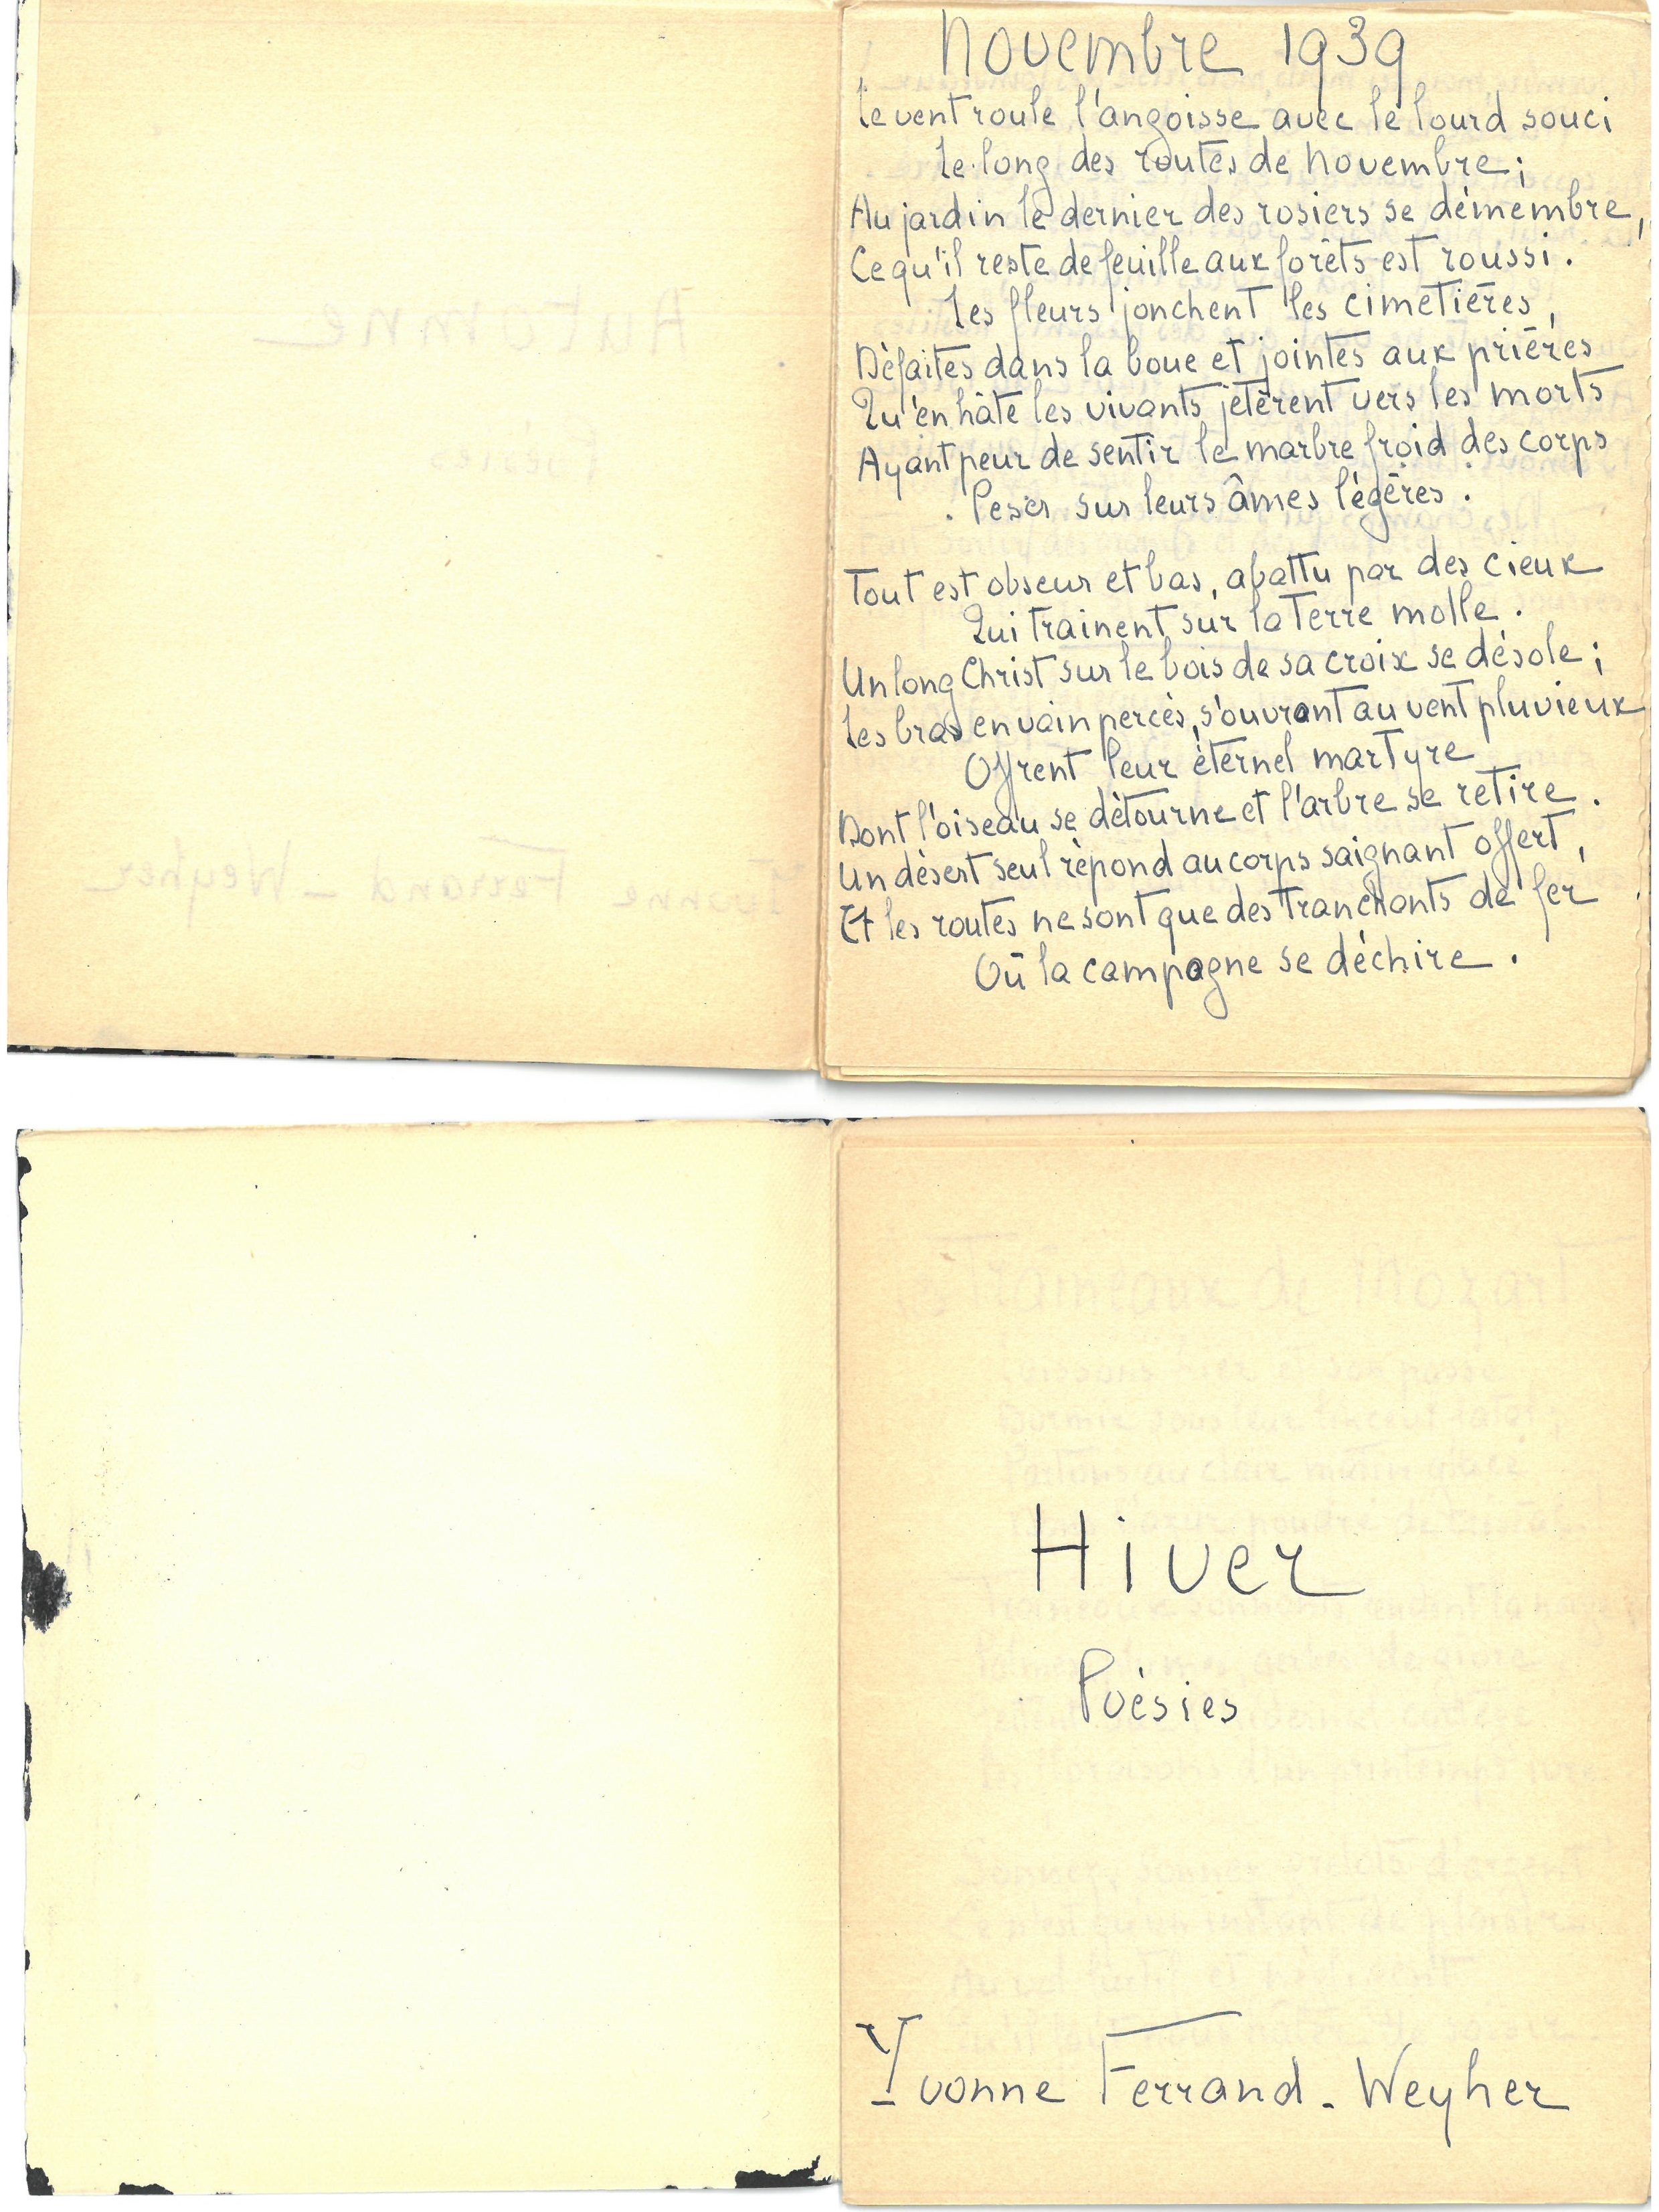 Novembre 1939
Le vent roule l'angoisse avec le lourd souci
Le long des routes de Novembre ;
Au jardin le dernier des rosiers se démembre,
Ce qu'il reste de feuille aux forêts est roussi.
Les fleurs jonchent les cimetières,
Défaites dans la boue et jointes aux prières
Qu'en hâte les vivants jetèrent vers les morts
Ayant peur de sentir le marbre froid des corps
Peser sur leurs âmes légères.
Tout est obscur et bas, abattu par des cieux
Qui trainent sur la terre molle.
Un long Christ sur le bois de sa croix se désole ;
Les bras en vain percés, s'ouvrant au vent pluvieux
Offrent leur éternel martyre
Dont l'oiseau se détourne et l'arbre se retire.
Un désert seul répond au corps saignant offert,
Et les routes ne sont que des tranchants de fer
Où la campagne se déchire.
Automne
Poésies
Yvonne Ferrand - Weyher
Hiver
Poésies
Yvonne Ferrand - Weyher